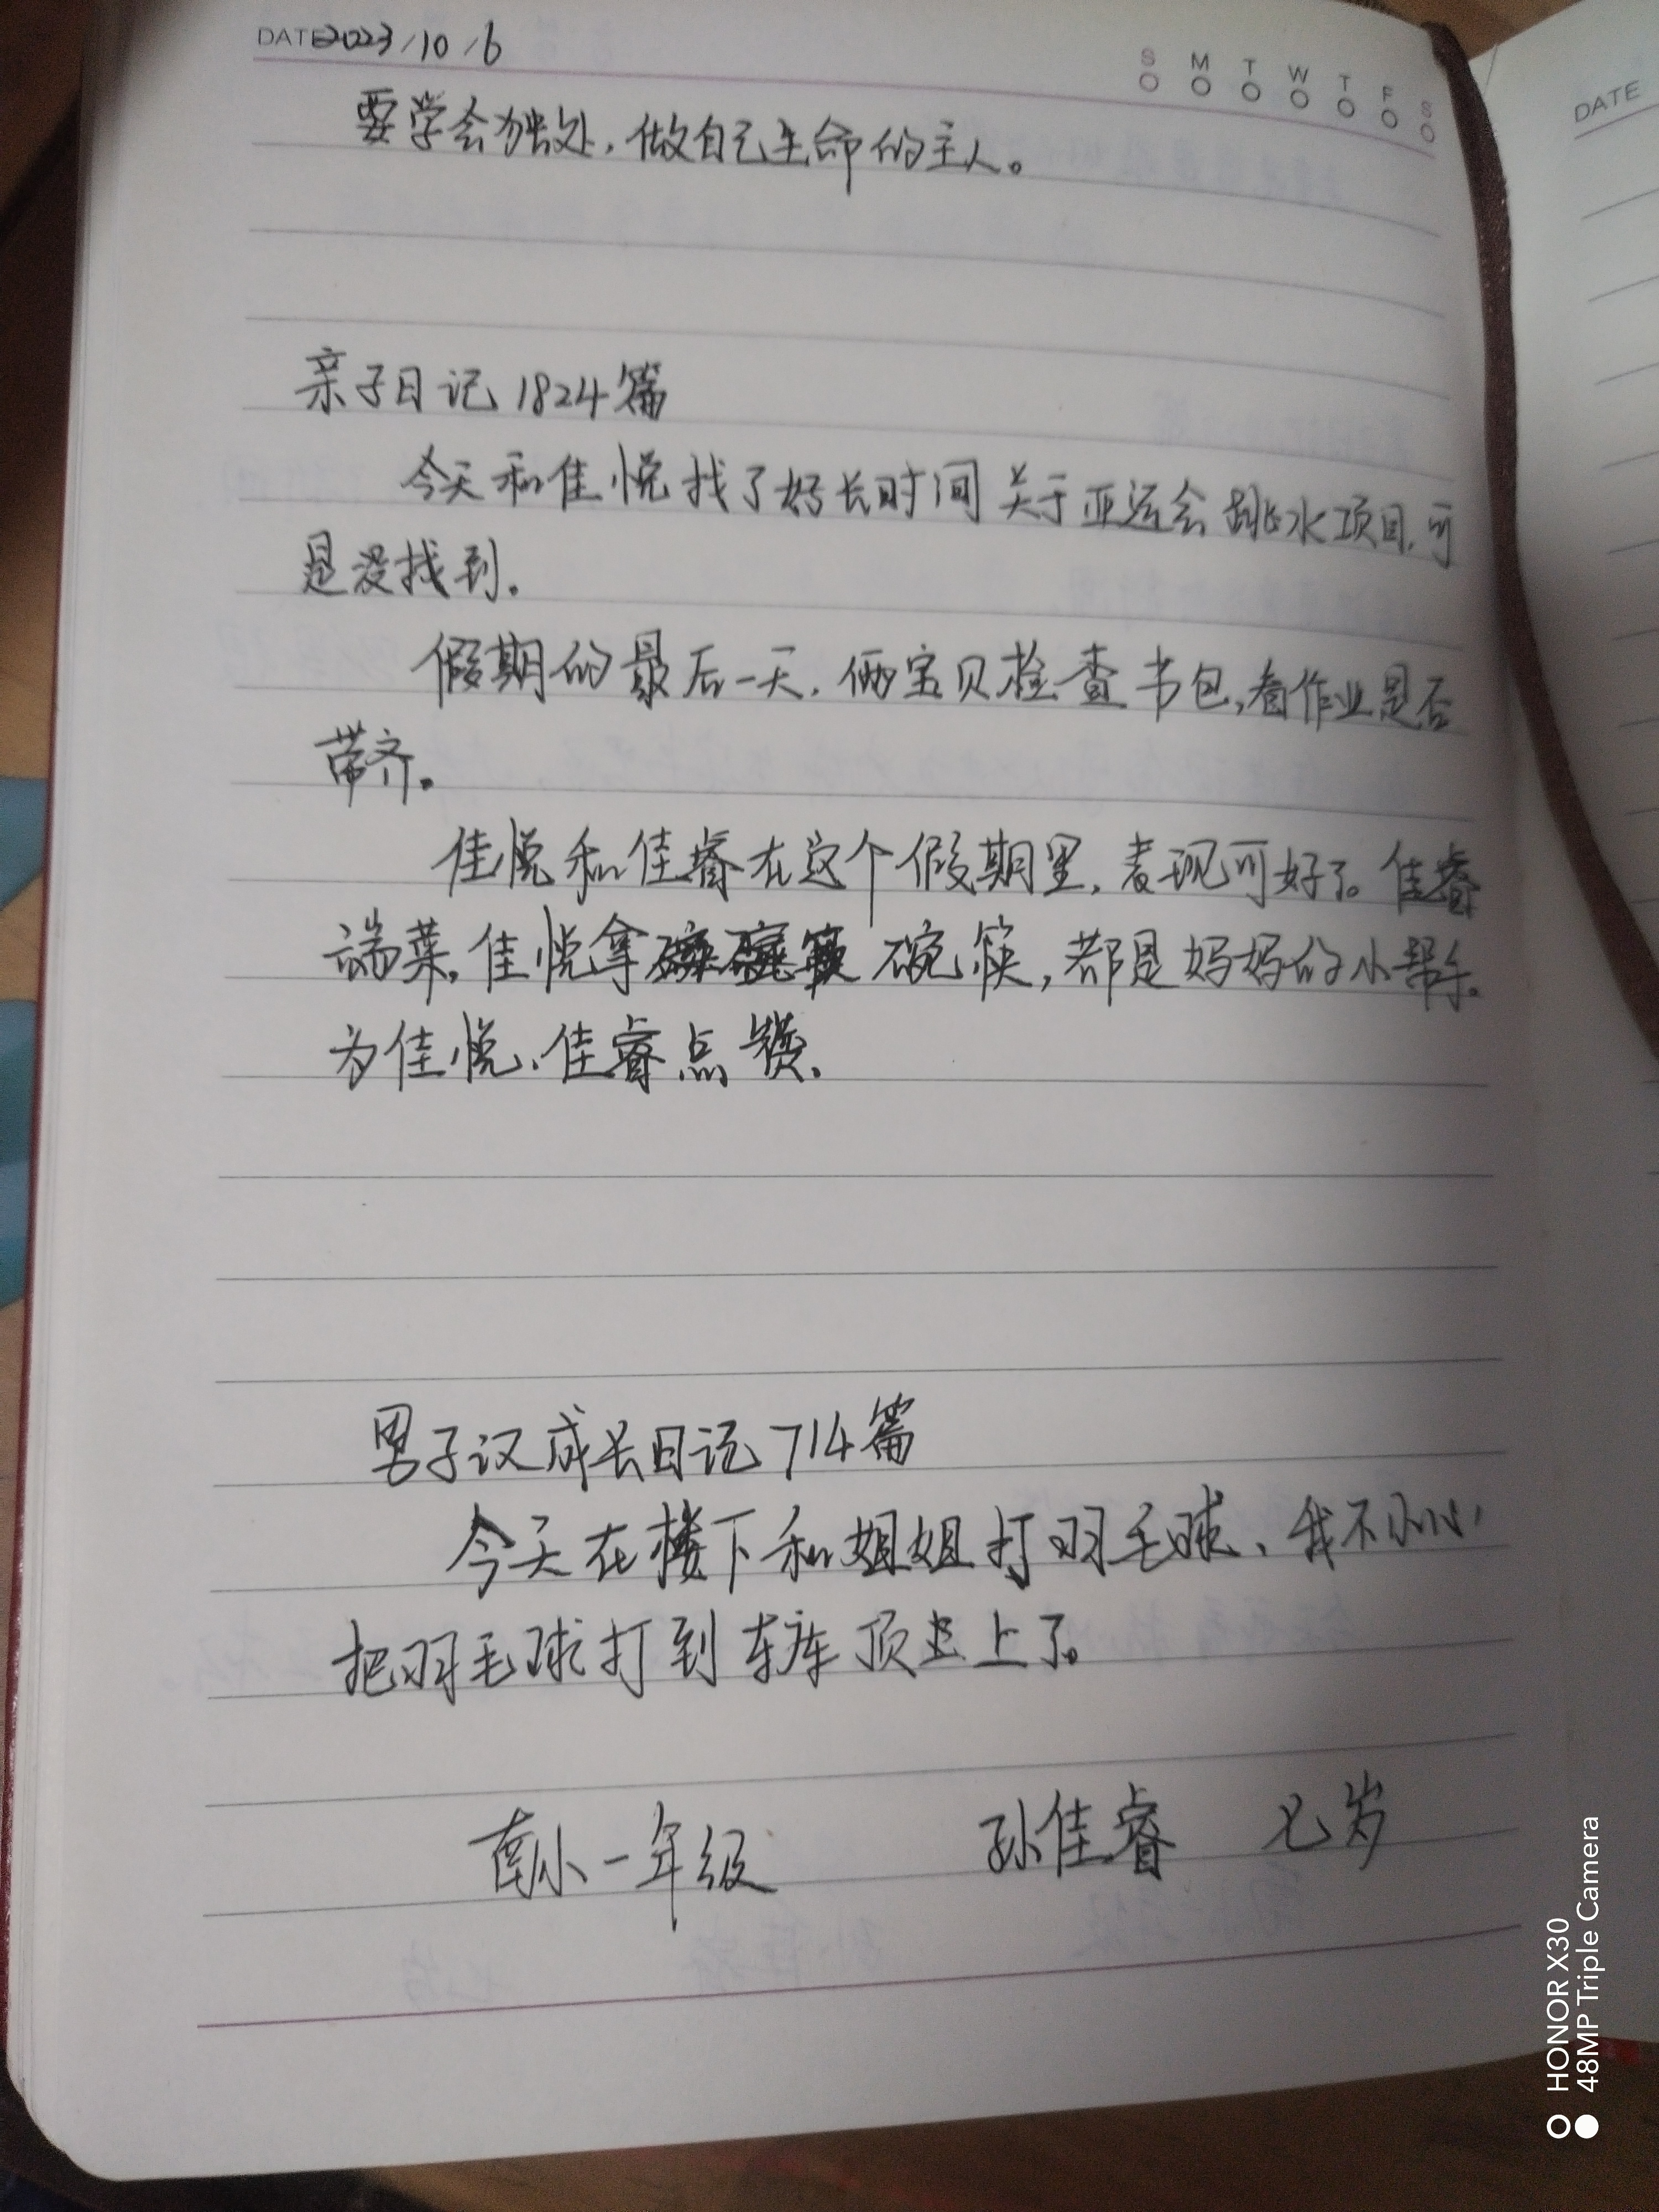 DATE 2023/10/6
S M T W T F S
要学会独处,做自己生命的主人。
亲子日记 1824篇
今天和佳悦找了好长时间关于亚运会跳水项目,可
是没找到.
假期的最后一天,俩宝贝检查书包,看作业是否
带齐。
佳悦和佳睿在这个假期里,表现可好了。佳睿
端菜,佳悦拿碗筷,都是妈妈的小帮手.
为佳悦、佳睿点赞.
男子汉成长日记 714篇
今天在楼下和姐姐打羽毛球、我不小心
把羽毛球打到车库顶上了。
南小一年级 孙佳睿 七岁
DATE
HONOR X30
48MP Triple Camera